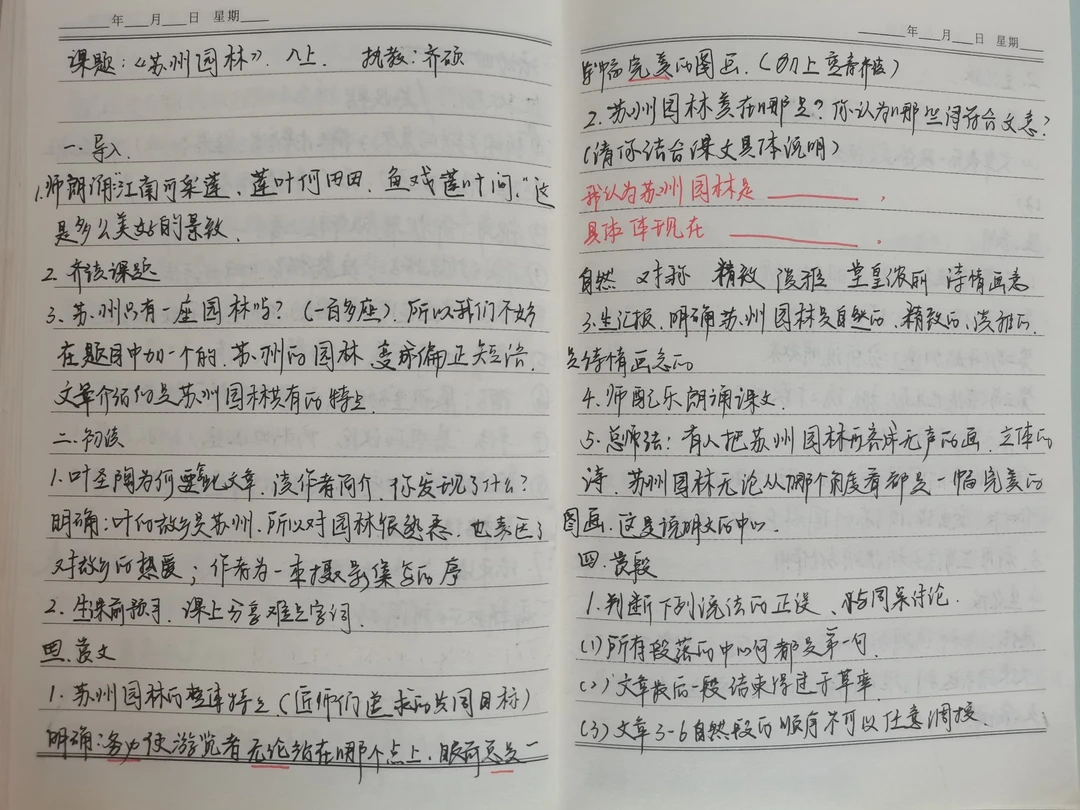 年 月 日 星期
课题:《苏州园林》.八上. 执教:齐硕
一.导入.
1.师朗诵"江南可采莲,莲叶何田田,鱼戏莲叶间."这
是多么美好的景致.
2.齐读课题
3.苏州只有一座园林吗?(一百多座).所以我们不妨
在题目中加一个的.苏州的园林.变成偏正短语.
文章介绍的是苏州园林共有的特点.
二.初读
1.叶圣陶为何要写此文章.读作者简介.你发现了什么?
明确:叶的故乡是苏州.所以对园林很熟悉.也表达了
对故乡的热爱;作者为一本摄影集写的序
2.生课前预习.课上分享难点字词.
三.读文
1.苏州园林的整体特点(匠师们追求的共同目标)
明确:务必使游览者无论站在哪个点上,眼前总是一
年 月 日 星期
幅完美的图画.(加上重音并读)
2.苏州园林美在哪里?你认为哪些词符合文意?
(请你结合课文具体说明)
我认为苏州园林是 ,
具体体现在 .
自然 对称 精致 淡雅 堂皇浓丽 诗情画意
3.生汇报.明确苏州园林是自然的、精致的、淡雅的.
是诗情画意的
4.师配乐朗诵课文.
5.总师读:有人把苏州园林形容成无声的画.立体的
诗.苏州园林无论从哪个角度看都是一幅完美的
图画.这是说明文的中心.
四.读段
1.判断下列说法的正误、与同桌讨论.
(1)所有段落的中心句都是第一句.
(2)文章最后一段结束得过于草率
(3)文章3-6自然段的顺序不可以任意调换.